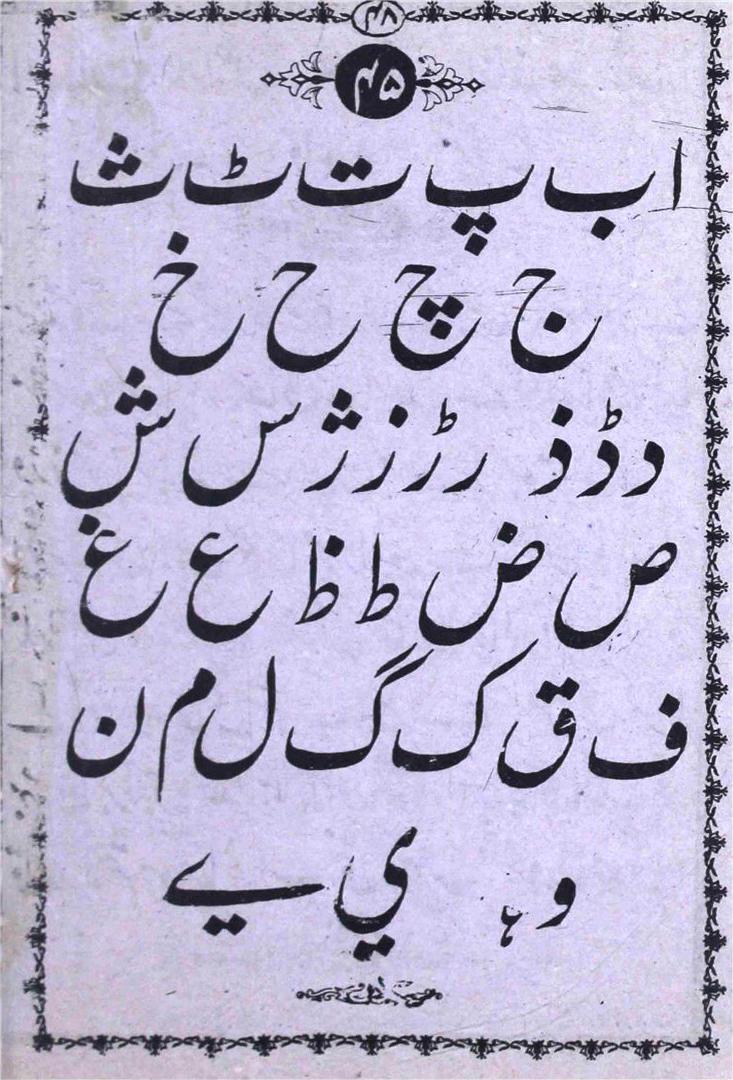 ۴۸
۴۵
ا ب پ ت ٹ ث
ج چ ح خ
د ڈ ذ ر ڑ ز ژ س ش
ص ض ط ظ ع غ
ف ق ک گ ل م ن
و ہ ي ے